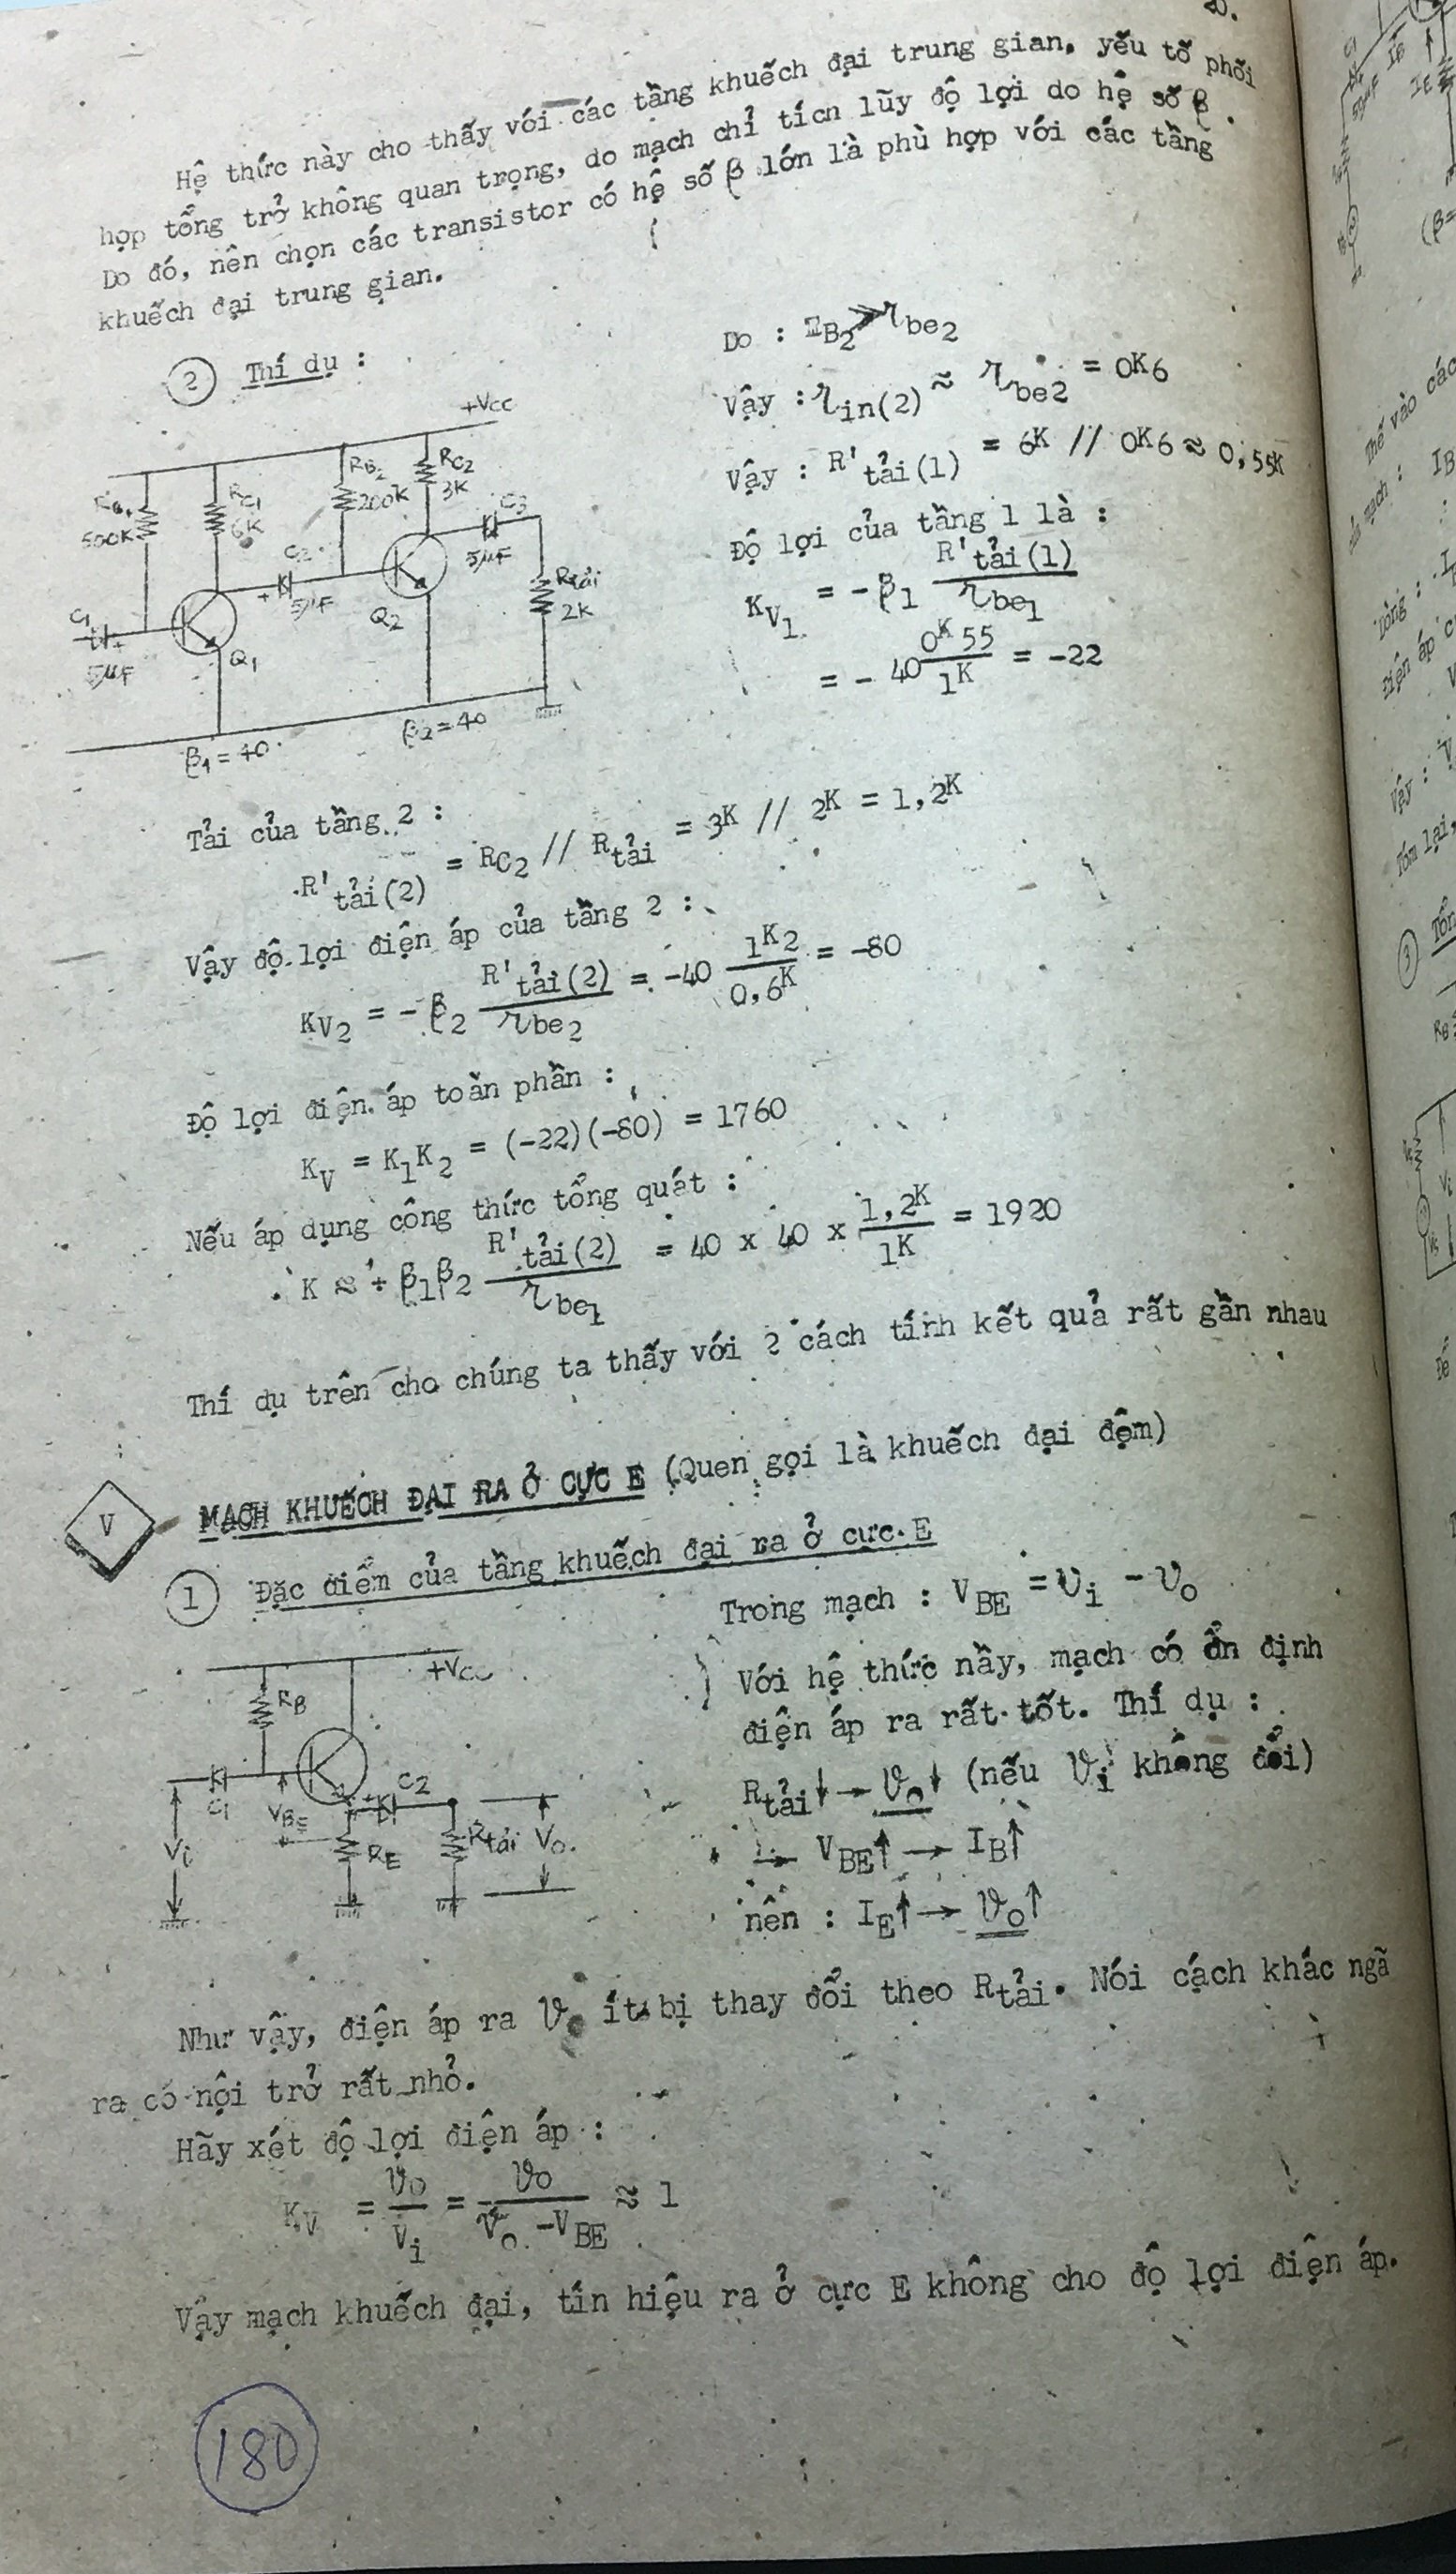 Hệ thức này cho thấy với các tầng khuếch đại trung gian, yếu tố phối
hợp tổng trở không quan trọng, do mạch chỉ tích lũy độ lợi do hệ số β.
Do đó, nên chọn các transistor có hệ số β lớn là phù hợp với các tầng
khuếch đại trung gian.
2 Thí dụ :
+Vcc
RB1
500K
RC1
6K
RB2
200K
RC2
3K
C3
5µF
C2
+
5µF
Rtải
2K
C1
+
5µF
Q1
Q2
β1 = 40
β2 = 40
Do : RB2 ≫ rbe2
Vậy : rin(2) ≈ rbe2 = 0K6
Vậy : R'tải(1) = 6K // 0K6 ≈ 0,55K
Độ lợi của tầng 1 là :
KV1 = - β1 R'tải(1) / rbe1
= - 40 0K55 / 1K = -22
Tải của tầng 2 :
R'tải(2) = RC2 // Rtải = 3K // 2K = 1,2K
Vậy độ lợi điện áp của tầng 2 :
KV2 = - β2 R'tải(2) / rbe2 = -40 1K2 / 0,6K = -80
Độ lợi điện áp toàn phần :
KV = K1K2 = (-22)(-80) = 1760
Nếu áp dụng công thức tổng quát :
K ≈ + β1β2 R'tải(2) / rbe1 = 40 x 40 x 1,2K / 1K = 1920
Thí dụ trên cho chúng ta thấy với 2 cách tính kết quả rất gần nhau
V MẠCH KHUẾCH ĐẠI RA Ở CỰC E (Quen gọi là khuếch đại đệm)
1 Đặc điểm của tầng khuếch đại ra ở cực E
+Vcc
RB
C1
VBE
+
C2
RE
Rtải
Vi
Vo
Trong mạch : VBE = vi - vo
Với hệ thức nầy, mạch có ổn định
điện áp ra rất tốt. Thí dụ :
Rtải↓ → vo↓ (nếu vi không đổi)
→ VBE↑ → IB↑
nên : IE↑ → vo↑
Như vậy, điện áp ra vo ít bị thay đổi theo Rtải. Nói cách khác ngã
ra có nội trở rất nhỏ.
Hãy xét độ lợi điện áp :
KV = vo / vi = vo / vo - VBE ≈ 1
Vậy mạch khuếch đại, tín hiệu ra ở cực E không cho độ lợi điện áp.
180